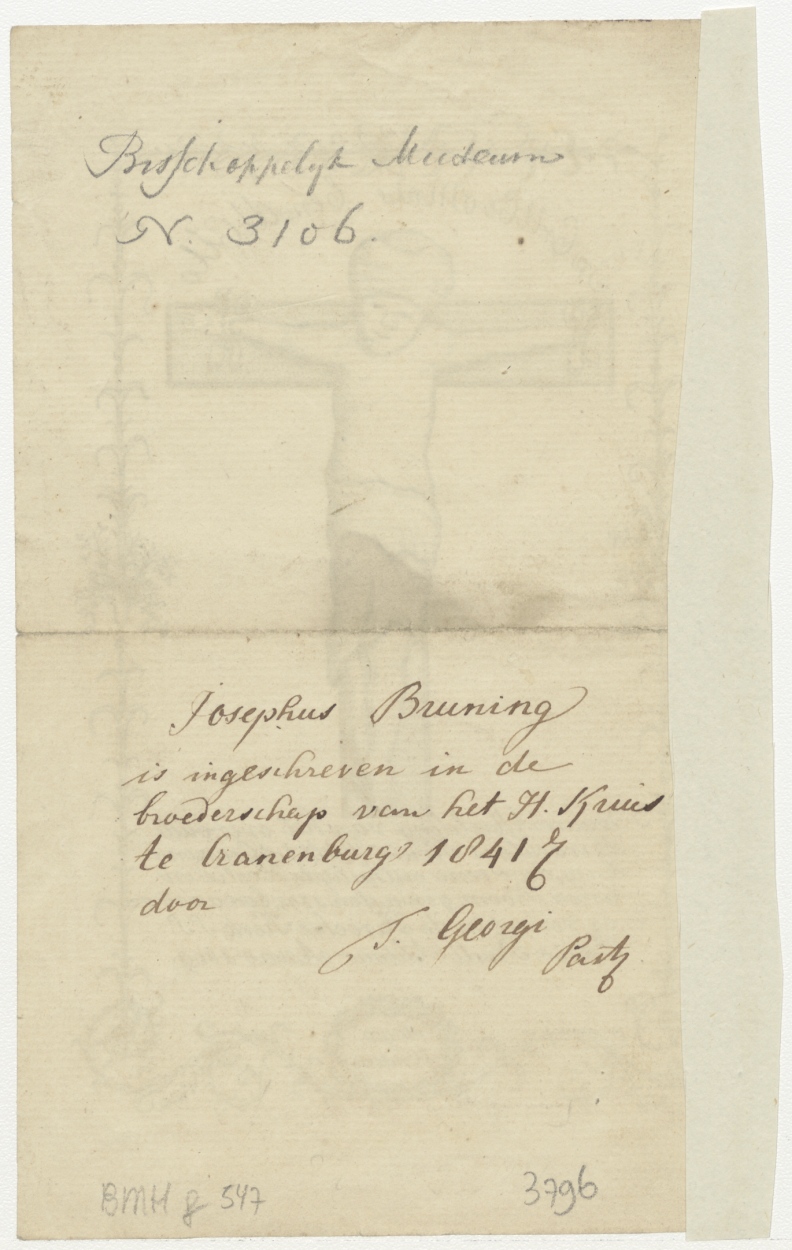 Bisschoppelyk Museum
N. 3106.
Josephus Bruning
is ingeschreven in de
broederschap van het H. Kruis
te Cranenburg 1841
door
T. Georgi
Past
BMH g 547
3796